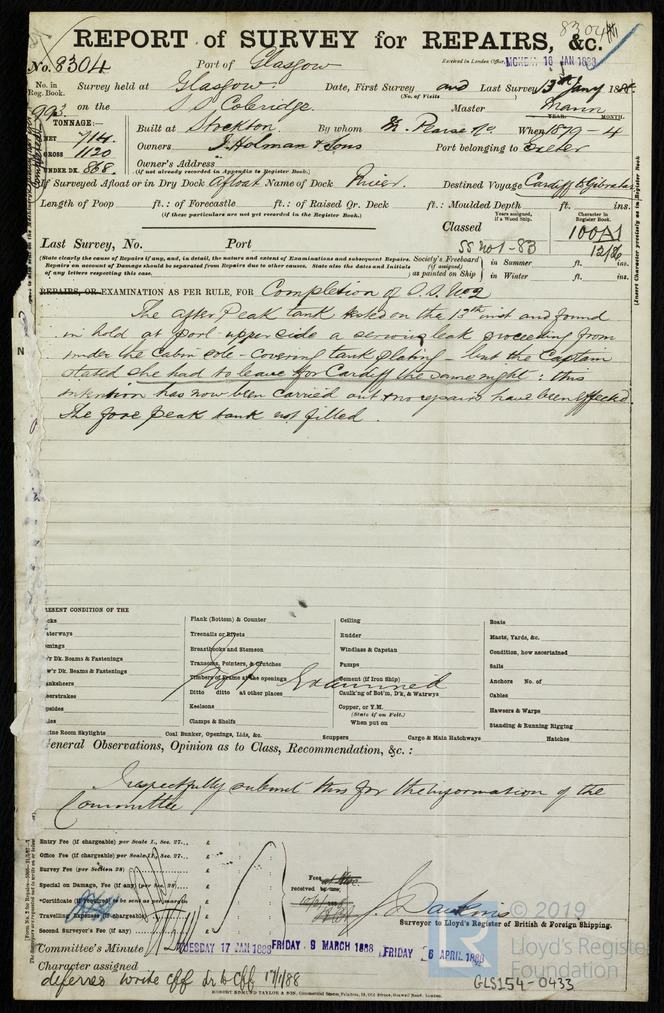 8304
REPORT of SURVEY for REPAIRS, &c.
No. 8304 Port of Glasgow Received in London Office, MONDAY 16 JAN 1888
No. in Reg. Book. Survey held at Glasgow Date, First Survey and Last Survey 13th Jany 1888
(No. of Visits)
993 on the S.S. Coleridge Master Mann
TONNAGE:— YEAR. MONTH.
NET 714 Built at Stockton By whom M. Pearse & Co When 1879-4
GROSS 1120 Owners J. Holman & Sons Port belonging to Exeter
UNDER DK. 868 Owner's Address
(if not already recorded in Appendix to Register Book.)
If Surveyed Afloat or in Dry Dock Afloat Name of Dock River. Destined Voyage Cardiff & Gibraltar
Length of Poop ft.: of Forecastle ft.: of Raised Qr. Deck ft.: Moulded Depth ft. ins.
(if these particulars are not yet recorded in the Register Book.)
Years assigned, if a Wood Ship. Character in Register Book.
Classed 100A1
Last Survey, No. Port SS No1-83 12/86
(State clearly the cause of Repairs if any, and, in detail, the nature and extent of Examinations and subsequent Repairs.
Repairs on account of Damage should be separated from Repairs due to other causes. State also the dates and Initials
of any letters respecting this case.
Society's Freeboard (if assigned) as painted on Ship
in Summer ft. ins.
in Winter ft. ins.
(Insert Character precisely as in Register Book
REPAIRS, OR EXAMINATION AS PER RULE, FOR Completion of S.S. No 2
The after Peak tank tested on the 13th inst and found
in hold at port upper side a serious leak proceeding from
under the cabin sole - covering tank plating - but the Captain
stated she had to leave for Cardiff the same night: this
intention has now been carried out & no repairs have been effected.
The fore peak tank not filled.
RESENT CONDITION OF THE
Plank (Bottom) & Counter
Treenails or Rivets
Breasthooks and Stemson
Transoms, Pointers, & Crutches
Timbers of Frame at the openings
Ditto ditto at other places
Keelsons
Clamps & Shelfs
Coal Bunker, Openings, Lids, &c.
Ceiling
Rudder
Windlass & Capstan
Pumps
Cement (if Iron Ship)
Caulk'ng of Bot'm, D'k, & Watrwys
Copper, or Y.M.
(State if on Felt.)
When put on
Scuppers
Cargo & Main Hatchways
Boats
Masts, Yards, &c.
Condition, how ascertained
Sails
Anchors No. of
Cables
Hawsers & Warps
Standing & Running Rigging
Hatches
Examined
General Observations, Opinion as to Class, Recommendation, &c.:
Respectfully submit this for the information of the
Committee
Entry Fee (if chargeable) per Scale I., Sec. 27... £ : :
Office Fee (if chargeable) per Scale II., Sec. 27... £ : :
Survey Fee (per Section 28) £ : :
Special on Damage, Fee (if any) (per Sec. 28) £ : :
*Certificate (if required) to be sent as per margin
Travelling Expenses (if chargeable) £ : :
Second Surveyor's Fee (if any) £ : :
Fees
received by me,
J. Dawkins
Surveyor to Lloyd's Register of British & Foreign Shipping.
Committee's Minute TUESDAY 17 JAN 1888 FRIDAY 9 MARCH 1888 FRIDAY 6 APRIL 1888
Character assigned
deferred write Cff 17/1/88
ROBERT EDMUND TAYLOR & SON, Commercial Stores, Printers, 19, Old Street, Goswell Road, London.
© 2019
Lloyd's Register
Foundation
GLS154-0433